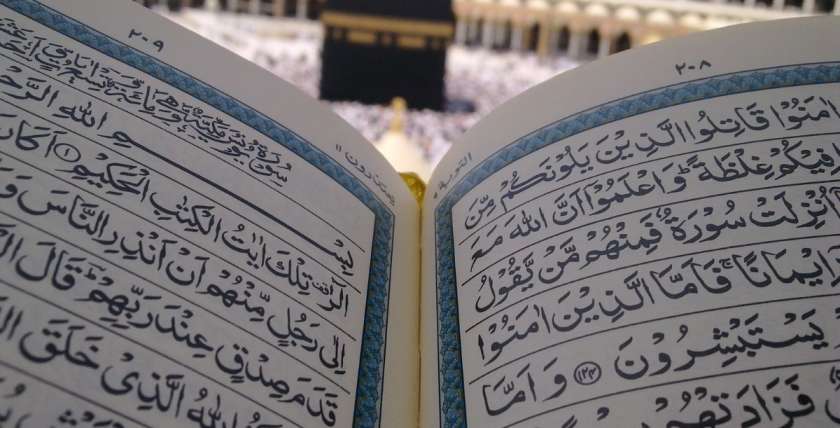 ٢٠٨
التوبة ٩
اٰمَنُوۡا قَاتِلُوا الَّذِيۡنَ يَلُوۡنَكُمۡ مِّنَ
فِيۡكُمۡ غِلۡظَةً ؕ وَاعۡلَمُوۡۤا اَنَّ اللّٰهَ مَعَ
اُنۡزِلَتۡ سُوۡرَةٌ فَمِنۡهُمۡ مَّنۡ يَّقُوۡلُ
اِيۡمَانًا ۚ فَاَمَّا الَّذِيۡنَ اٰمَنُوۡا
يَسۡتَبۡشِرُوۡنَ ١٢٤ وَاَمَّا
فَزَادَتۡهُمۡ
٢٠٩
يعتذرون ١١
سُوۡرَةُ يُوۡنُسَ مَكِّيَّةٌ
بِسۡمِ اللّٰهِ الرَّحۡ
الٓرٰ تِلۡكَ اٰيٰتُ الۡكِتٰبِ الۡحَكِيۡمِ ١ اَكَانَ
اِلٰى رَجُلٍ مِّنۡهُمۡ اَنۡ اَنۡذِرِ النَّاسَ وَ
قَدَمَ صِدۡقٍ عِنۡدَ رَبِّهِمۡ ؕ قَالَ
اللّٰهُ الَّذِىۡ خَلَقَ